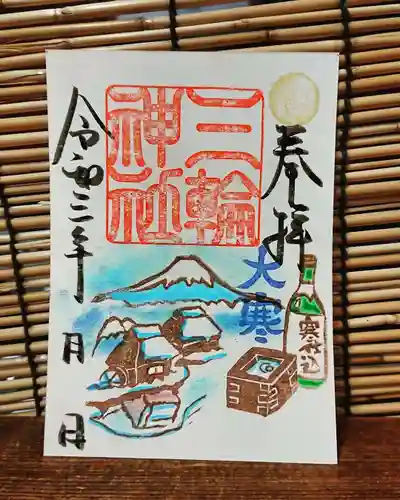 奉拝
大寒
三輪
神社
寒仕込
令和三年 月 日